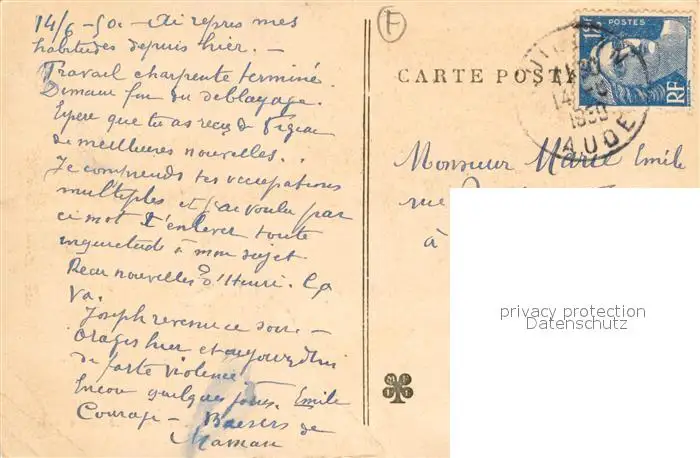 14/6 - 50. - Ai repris mes
habitudes depuis hier. -
Travail charpente terminé.
Demain fin du déblayage.
Espère que tu as reçu de
de meilleures nouvelles.
Je comprends tes occupations
multiples et j'ai voulu par
ce mot t'enlever toute
inquiétude à mon sujet
Reçu nouvelles d'Henri. Ça
va.
Joseph revenu ce soir. -
Orages hier et aujourd'hui
de forte violence
Encore quelques jours. Emile
Courage - Baisers de
Maman
F
CARTE POSTALE
POSTES
RF
14
1950
AUDE
Monsieur Marie Emile
rue
à
privacy protection
Datenschutz